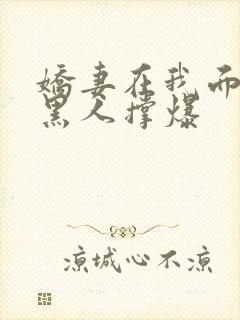 娇妻在我而
黑人撑爆
凉城心不凉